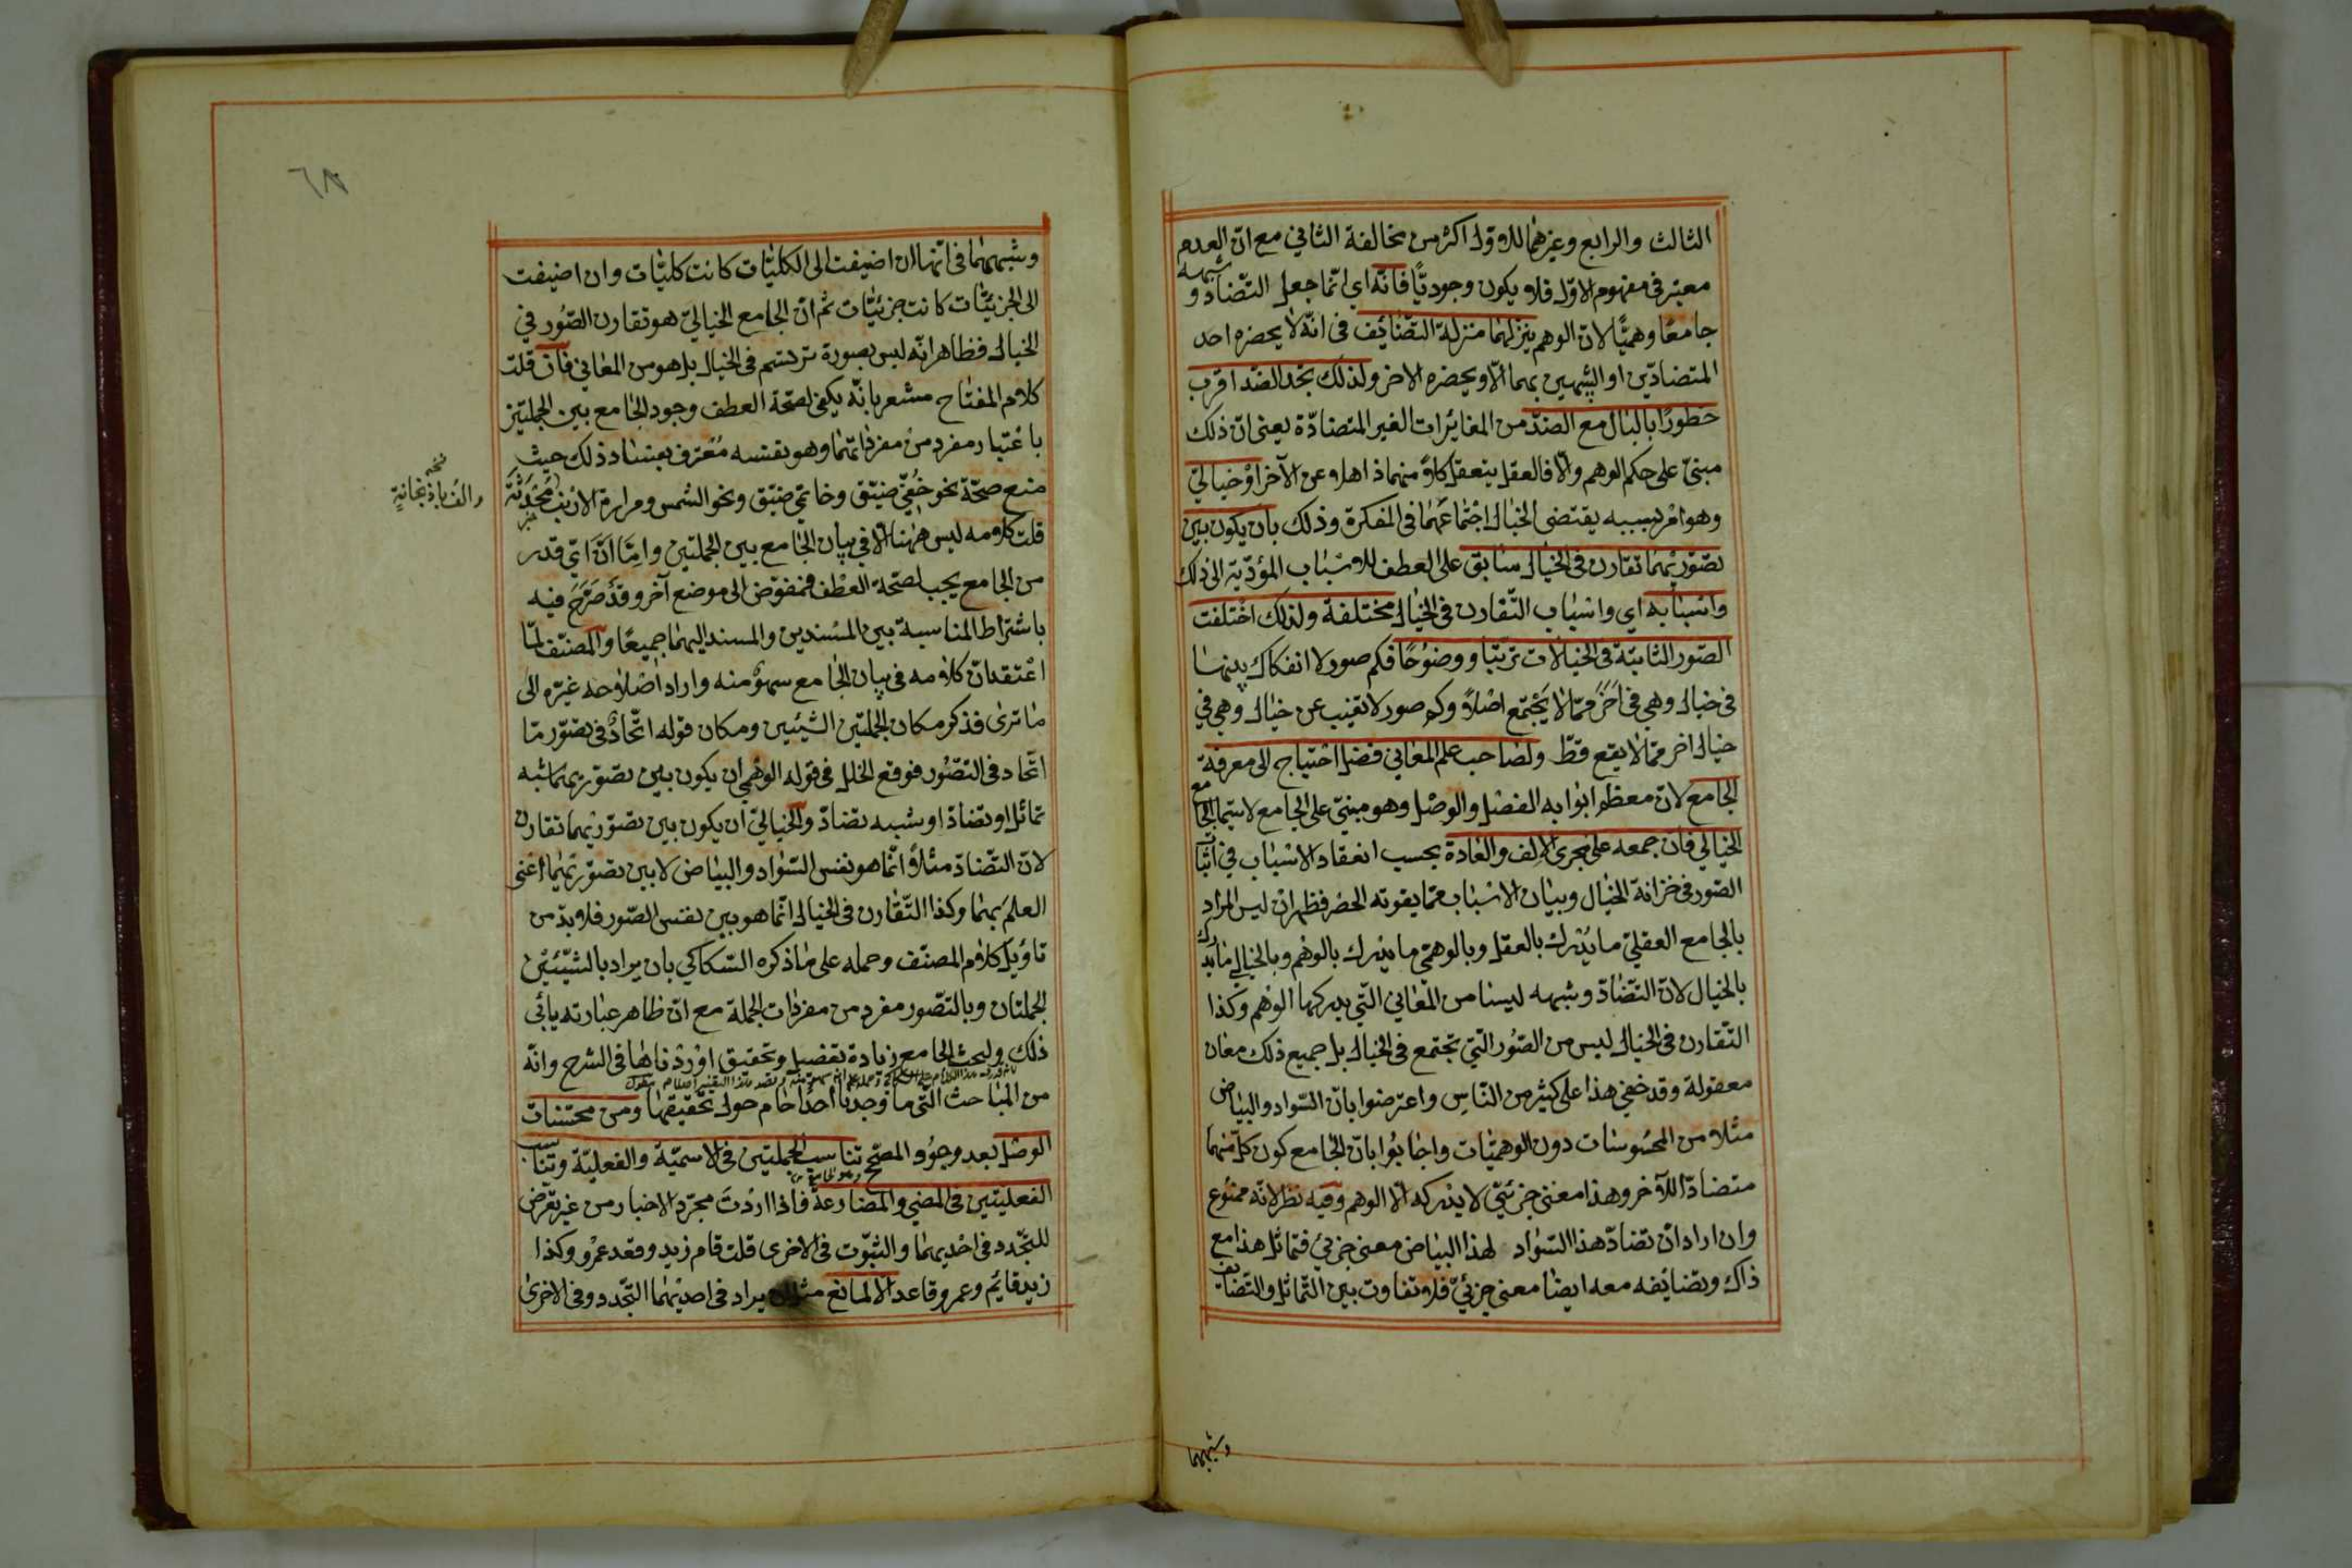 الثالث والرابع وغيرهما للاول اكثر من مخالفة الثاني مع ان العدم
معتبر في مفهوم الاوّل فلا يكون وجوديًّا فانّه اي انّما جعل التّضادّ و شبهه
جامعًا وهميًّا لان الوهم ينزلهما منزلة التّضائف في انّه لا يحضره احد
المتضادّين او الشبيهين بهما الّا ويحضره الاخر ولذلك تجد الضّد اقرب
خطورًا بالبال مع الضدّ من المغايرات الغير المتضادّة يعني انّ ذلك
مبنيّ على حكم الوهم والّا فالعقل يتعقل كلاً منهما ذاهلا عن الآخر او خياليّ
وهو امر بسببه يقتضي الخيال اجتماعهما في المفكرة وذلك بان يكون بين
تصوّريهما تقارن في الخيال سابق على العطف للاسباب المؤدّية الى ذلك
واسبابه اي واسباب التّقارن في الخيال مختلفة ولذلك اختلفت
الصّور الثابتة في الخيالات ترتّبا ووضوحًا فكم صور لا انفكاك بينهما
في خيال وهي في اخر ممّا لا يجتمع اصلاً وكم صور لا تغيب عن خيال وهي في
خيال اخر ممّا لا يقع قطّ ولصاحب علم المعاني فضل احتياج الى معرفة
الجامع لانّ معظم ابوابه الفصل والوصل وهو مبنيّ على الجامع لا سيّما الجامع
الخيالي فان جمعه على مجرى الالف والعادة بحسب انعقاد الاسباب في اثبات
الصّور في خزانة الخيال وبيان الاسباب ممّا يفوته الحصر فظهر ان ليس المراد
بالجامع العقليّ ما يُدرك بالعقل وبالوهميّ ما يدرك بالوهم وبالخيالي ما يدرك
بالخيال لانّ التّضادّ وشبهه ليسا من المعاني التّي يدركها الوهم وكذا
التّقارن في الخيال ليس من الصّور التّي تجتمع في الخيال بل جميع ذلك معان
معقولة وقد خفي هذا على كثير من النّاس واعترضوا بانّ السّواد والبياض
مثلا من المحسوسات دون الوهميّات واجابوا بانّ الجامع كون كلّ منهما
متضادّا للآخر وهذا معنى جزئيّ لا يدركه الّا الوهم وفيه نظر لانّه ممنوع
وان اراد ان تضادّ هذا السّواد لهذا البياض معنى جزئي فتماثل هذا مع
ذاك وتضايفه معه ايضا معنى جزئيّ فلا تفاوت بين التّماثل والتّضايف
وشبههما
٦٨
وشبههما في انّها ان اضيفت الى الكليّات كانت كليّات وان اضيفت
الى الجزئيّات كانت جزئيّات ثم انّ الجامع الخياليّ هو تقارن الصّور في
الخيال فظاهر انّه ليس بصورة ترتسم في الخيال بل هو من المعاني فان قلت
كلام المفتاح مشعر بانّه يكفي لصحّة العطف وجود الجامع بين الجملتين
باعتبار مفرد من مفرداتهما وهو بنفسه معترف بفساد ذلك حيث
منع صحّة نحو خُفّي ضيّق وخاتمي ضيّق ونحو الشمس ومرارة الارنب محدثة
نسخه
والف باذنجانةٍ
قلت كلامه ليس ههنا الّا في بيان الجامع بين الجملتين وامّا انّ ايّ قدر
من الجامع يجب لصحّة العطف فمفوّض الى موضع آخر وقد صرّح فيه
باشتراط المناسبة بين المسندين والمسند اليهما جميعًا والمصنّف لمّا
اعتقد انّ كلامه في بيان الجامع سهو منه واراد اصلاحه غيّره الى
ما ترى فذكر مكان الجملتين الشيئين ومكان قوله اتّحادٌ في تصوّر ما
اتّحاد في التصّور فوقع الخلل في قوله الوهمي ان يكون بين تصوّريهما شبه
تماثل او تضادّ او شبه تضادّ والخياليّ ان يكون بين تصوّريهما تقارن
لانّ التّضادّ مثلاً انّما هو نفس السّواد والبياض لا بين تصوّريهما اعني
العلم بهما وكذا التّقارن في الخيال انّما هو بين نفس الصّور فلا بدّ من
تاويل كلام المصنّف وحمله على ما ذكره السّكاكي بان يراد بالشّيئين
الجملتان وبالتّصور مفرد من مفردات الجملة مع انّ ظاهر عبارته يابى
ذلك ولبحث الجامع زيادة تفصيل وتحقيق اوردناها في الشرح وانّه
من المباحث التّي ما وجدنا احدًا حام حول تحقيقها ومن محسّنات
الوصل بعد وجود المصحّح تناسب الجملتين في الاسميّة والفعليّة وتناسب
الفعليتين في المضي والمضارعة فاذا اردتَ مجرّد الاخبار من غير تعرّض
للتّجدد في احديهما والثبوت في الاخرى قلت قام زيد وقعد عمرو وكذا
زيد قايم وعمرو قاعد الا لمانع مثل ان يراد في احديهما التّجدد وفي الاخرى